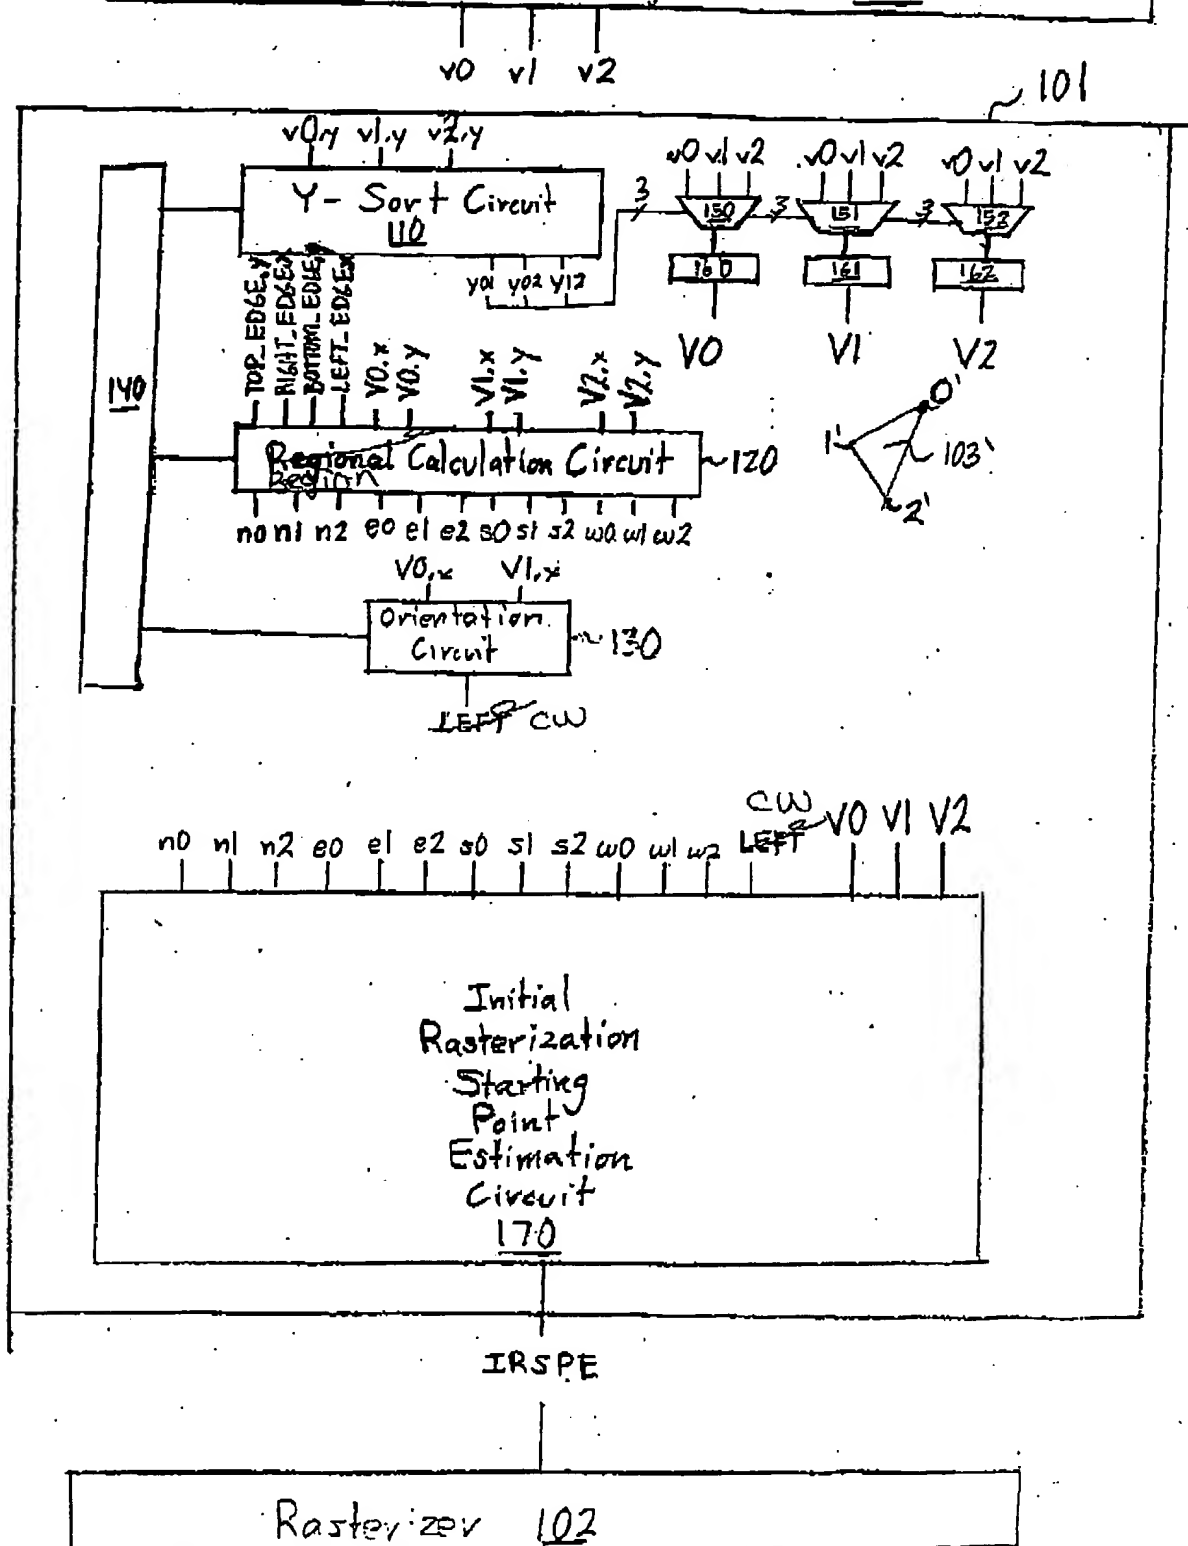 v0 v1 v2
101
v0.y v1.y v2.y
Y-Sort Circuit
110
3
v0 v1 v2
150
3
v0 v1 v2
151
3
v0 v1 v2
153
160
161
162
V0
V1
V2
y01 y02 y12
140
TOP_EDGE.y
RIGHT_EDGEx
BOTTOM_EDGE.y
LEFT_EDGEx
V0.x
V0.y
V1.x
V1.y
V2.x
V2.y
Regional Calculation Circuit
Region
120
0'
1'
103'
2'
n0 n1 n2 e0 e1 e2 s0 s1 s2 w0 w1 w2
V0.x V1.x
Orientation
Circuit
130
LEFT CW
CW
n0 n1 n2 e0 e1 e2 s0 s1 s2 w0 w1 w2 LEFT V0 V1 V2
Initial
Rasterization
Starting
Point
Estimation
Circuit
170
IRSPE
Rasterizer 102